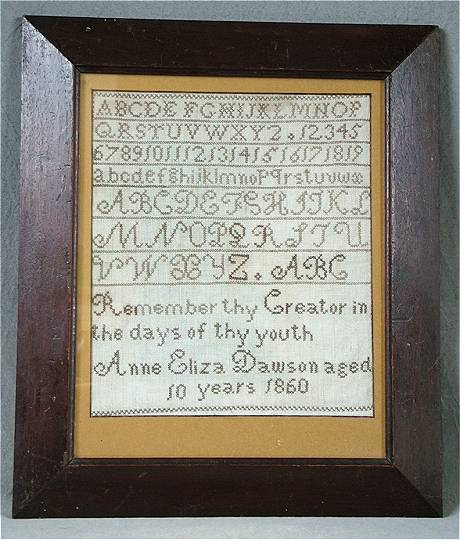 ABCDEFGHIJKLMNOP
QRSTUVWXYZ.12345
678910111213141516171819
abcdefghijklmnopqrstuvwx
ABCDEFGHIJKL
MNOPQRSTU
VWXYZ.ABC
Remember thy Creator in
the days of thy youth
Anne Eliza Dawson aged
10 years 1860